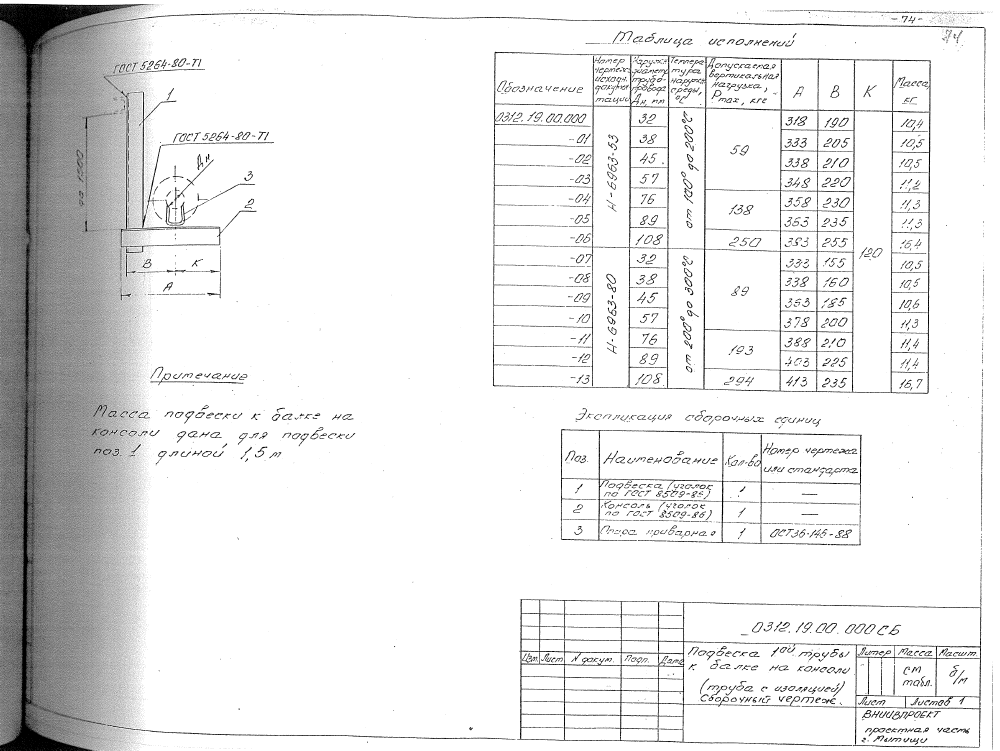 -74-
74
Таблица исполнений
ГОСТ 5264-80-Т1
1
до 1500
ГОСТ 5264-80-Т1
Дн
3
2
В К
А
Обозначение Номер чертеж. исходн. докумен- тации Наружн. диаметр трубо- провода Дн, мм Темпера- тура наружн. среды, °С Допускаемая вертикальная нагрузка, Рmax, кгс А В К Масса, кг
0312.19.00.000 Н-6963-53 32 от 100° до 200°С 59 318 190 120 10,4
-01 38 333 205 10,5
-02 45 338 210 10,5
-03 57 348 220 11,2
-04 76 138 358 230 11,3
-05 89 363 235 11,3
-06 108 250 383 255 16,4
-07 Н-6963-80 32 от 200° до 300°С 89 333 155 10,5
-08 38 338 160 10,5
-09 45 363 185 10,6
-10 57 378 200 11,3
-11 76 193 388 210 11,4
-12 89 403 225 11,4
-13 108 294 413 235 16,7
Примечание
Масса подвески к балке на
консоли дана для подвески
поз. 1 длиной 1,5 м
Экспликация сборочных единиц
Поз. Наименование Кол-во Номер чертежа или стандарта
1 Подвеска (уголок по ГОСТ 8509-86) 1 —
2 Консоль (уголок по ГОСТ 8509-86) 1 —
3 Опора приварная 1 ОСТ36-146-88
0312.19.00.000СБ
Изм. Лист N докум. Подп. Дата
Подвеска 1ой трубы
к балке на консоли
(труба с изоляцией)
Сборочный чертеж.
Литер Масса Масшт.
см табл. б/м
Лист Листов 1
ВНИИЗПРОЕКТ
проектная часть
г. Мытищи